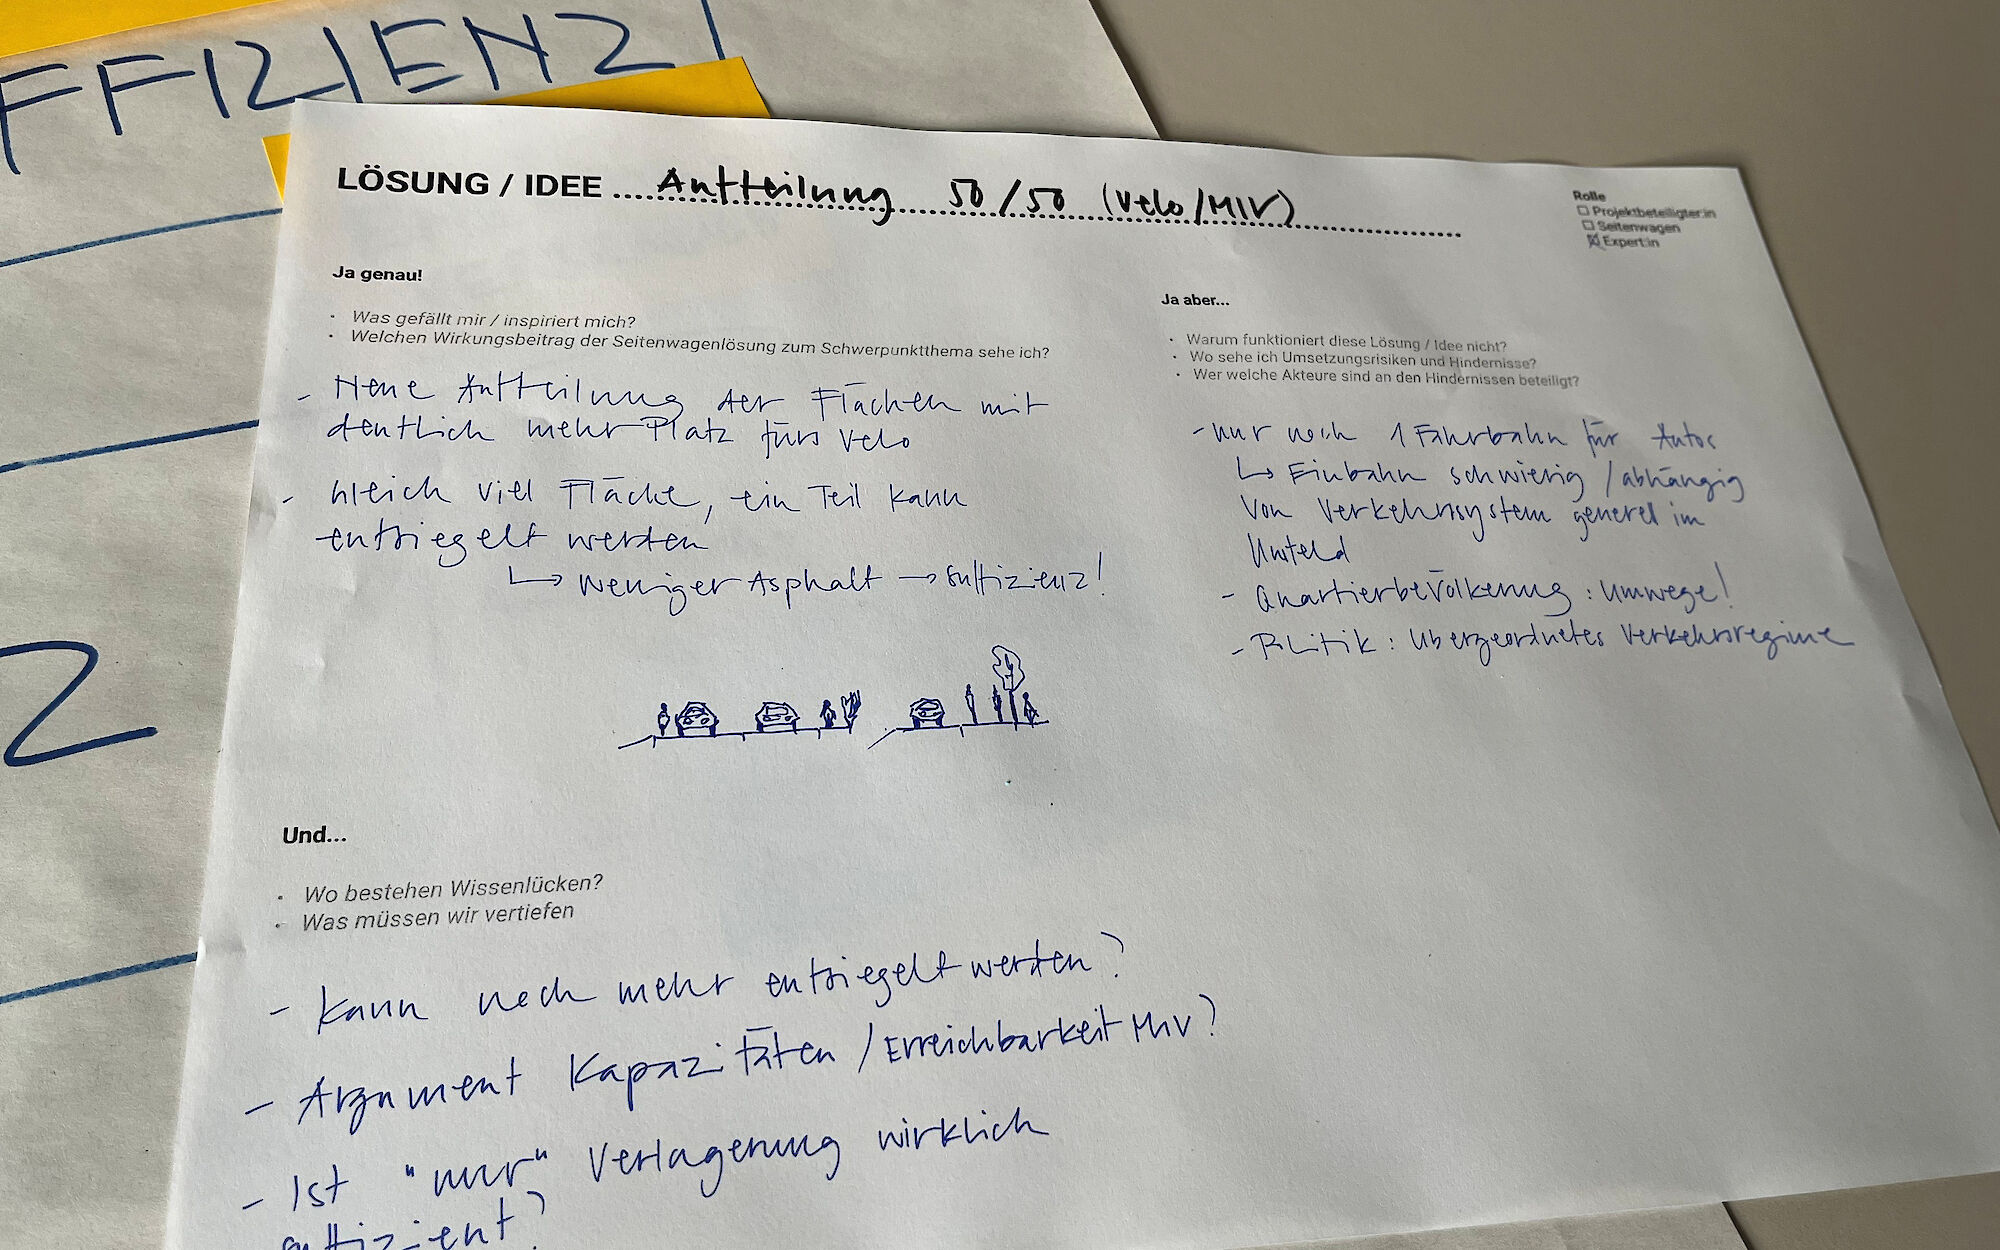 FFIZIENZ
LÖSUNG / IDEE .... Aufteilung 50/50 (Velo/MIV)
Rolle
Projektbeteiligter:in
Seitenwagen
Expert:in
Ja genau!
• Was gefällt mir / inspiriert mich?
• Welchen Wirkungsbeitrag der Seitenwagenlösung zum Schwerpunktthema sehe ich?
- Neue Aufteilung der Flächen mit
deutlich mehr Platz fürs Velo
- Gleich viel Fläche, ein Teil kann
entsiegelt werden
↳ Weniger Asphalt → Suffizienz!
Ja aber...
• Warum funktioniert diese Lösung / Idee nicht?
• Wo sehe ich Umsetzungsrisiken und Hindernisse?
• Wer welche Akteure sind an den Hindernissen beteiligt?
- nur noch 1 Fahrbahn für Autos
↳ Einbahn schwierig / abhängig
von Verkehrssystem generell im
Umfeld
- Quartierbevölkerung: Umwege!
- Politik: Übergeordnetes Verkehrsregime
Z
Und...
• Wo bestehen Wissenlücken?
• Was müssen wir vertiefen
- Kann noch mehr entsiegelt werden?
- Argument Kapazitäten / Erreichbarkeit MIV?
- Ist "nur" Verlagerung wirklich
suffizient?